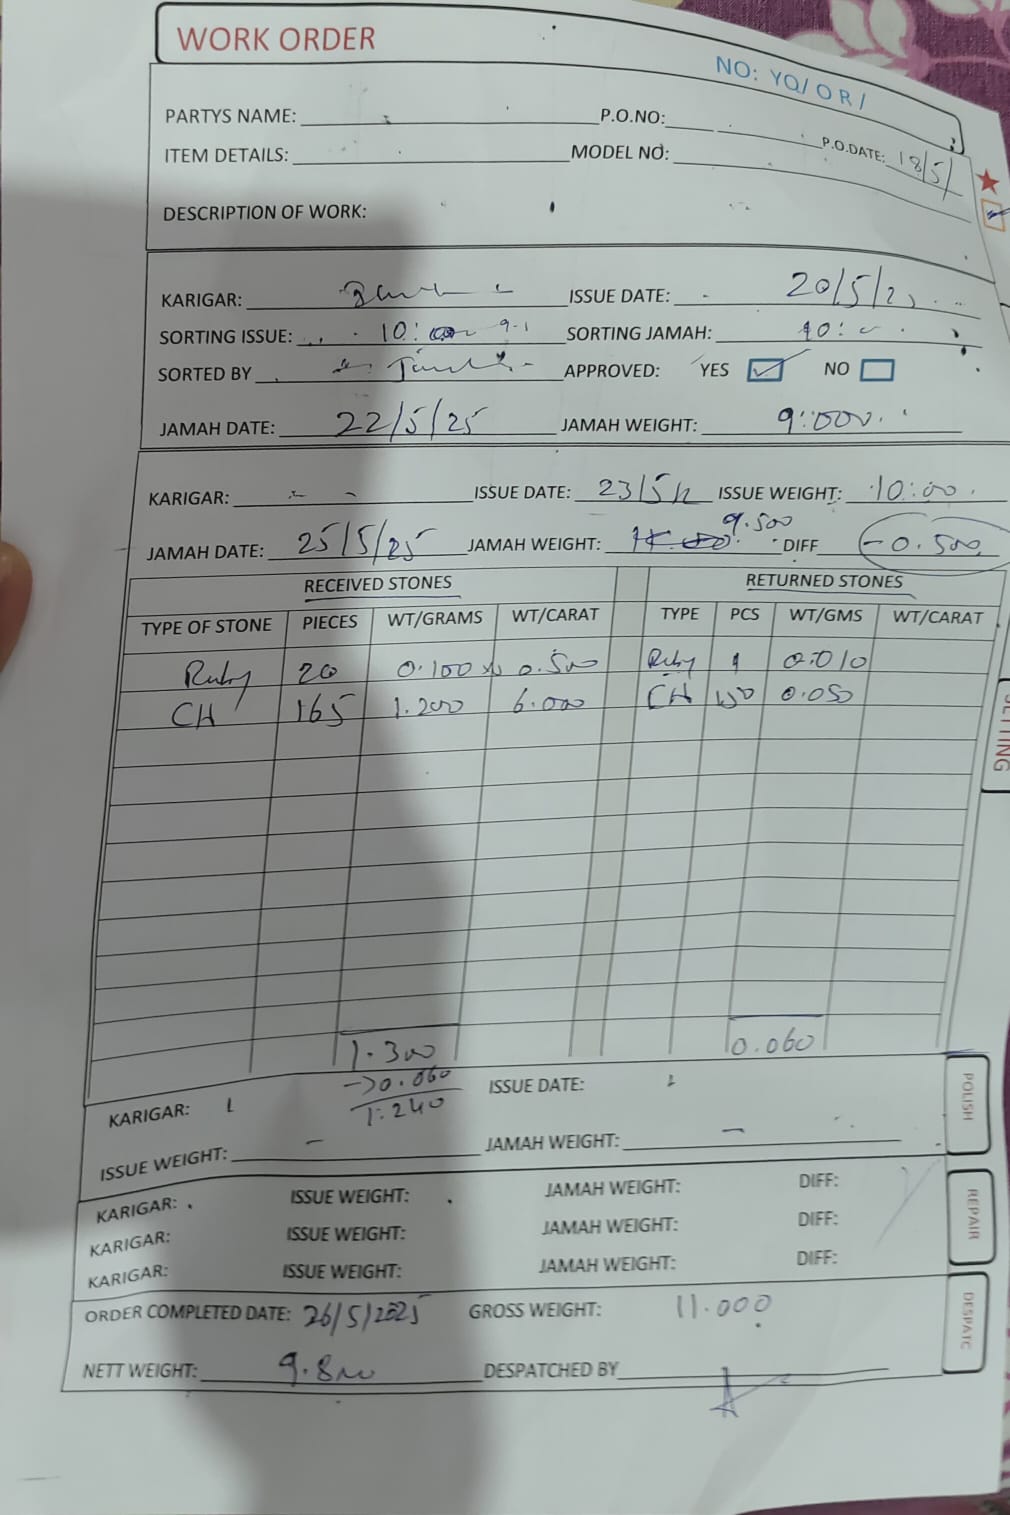 WORK ORDER
NO: YQ/ OR/
PARTYS NAME: P.O.NO: P.O.DATE: 18/5/
ITEM DETAILS: MODEL NO:
DESCRIPTION OF WORK:
KARIGAR: ISSUE DATE: 20/5/
SORTING ISSUE: 10: SORTING JAMAH: 10:
SORTED BY APPROVED: YES NO
JAMAH DATE: 22/5/25 JAMAH WEIGHT: 9:000
KARIGAR: ISSUE DATE: 23/5/ ISSUE WEIGHT: 10:00
JAMAH DATE: 25/5/25 JAMAH WEIGHT: 9.500 DIFF -0.500
RECEIVED STONES RETURNED STONES
TYPE OF STONE PIECES WT/GRAMS WT/CARAT TYPE PCS WT/GMS WT/CARAT
Ruby 20 0.100 0.500 Ruby 1 0.010
CH 165 1.200 6.000 CH 150 0.050
SETTING
1.300 0.060
->0.060
1.240
KARIGAR: ISSUE DATE:
POLISH
ISSUE WEIGHT: - JAMAH WEIGHT: -
KARIGAR: ISSUE WEIGHT: JAMAH WEIGHT: DIFF:
REPAIR
KARIGAR: ISSUE WEIGHT: JAMAH WEIGHT: DIFF:
KARIGAR: ISSUE WEIGHT: JAMAH WEIGHT: DIFF:
ORDER COMPLETED DATE: 26/5/2025 GROSS WEIGHT: 11.000
DESPATC
NETT WEIGHT: 9.800 DESPATCHED BY